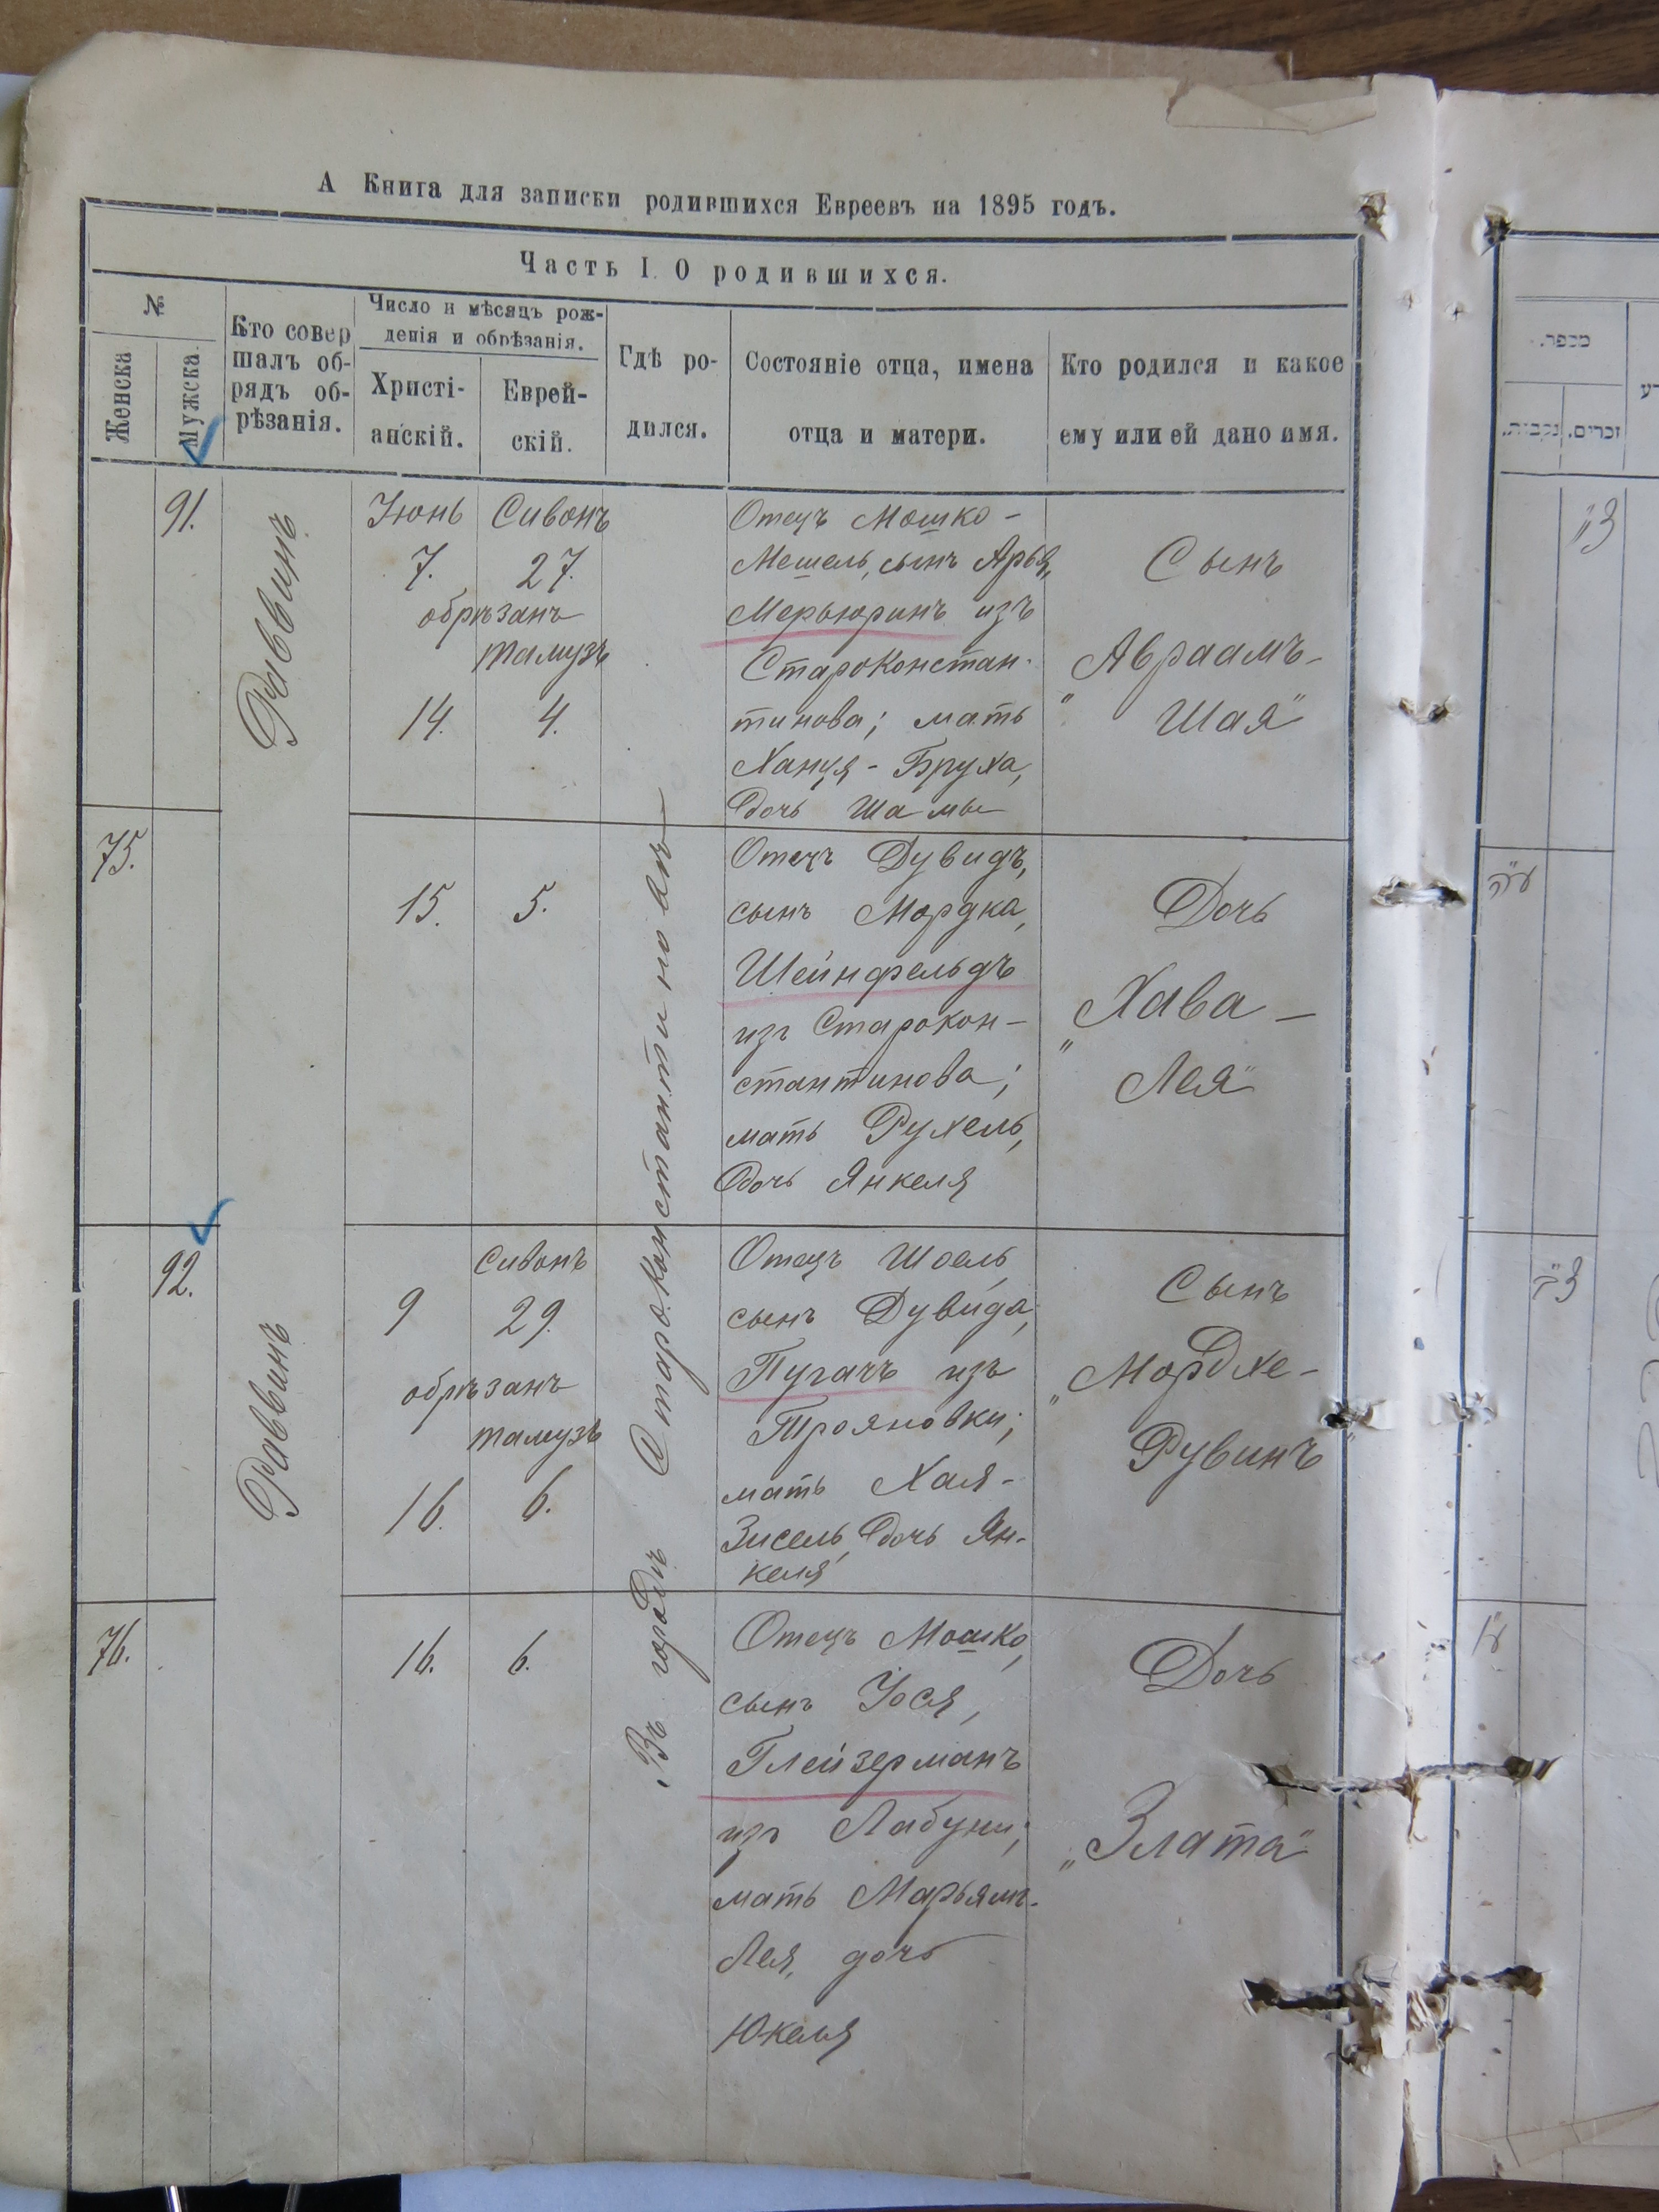 А Книга для записки родившихся Евреевъ на 1895 годъ.
Часть I. О родившихся.
№
Женска
Мужска
Кто совер
шалъ об-
рядъ об-
рѣзанія.
Число и мѣсяцъ рож-
денія и обрѣзанія.
Христі-
анскій.
Еврей-
скій.
Гдѣ ро-
дился.
Состояніе отца, имена
отца и матери.
Кто родился и какое
ему или ей дано имя.
91.
Раввинъ
Іюнь Сивонъ
7. 27.
обрѣзанъ
Тамузъ
14. 4.
Отецъ Мошко-
Мешель, сынъ Арья,
изъ
Староконстан-
тинова; мать
Ханця-Бруха,
дочь Шамы
Сынъ
Авраамъ-
„Шая"
75.
15. 5.
Отецъ Дувидъ,
сынъ Мордка,
Шейнфельдъ
изъ Старокон-
стантинова;
мать Рухель,
дочь Янкеля
Дочь
„Хава-
Лея"
92.
Раввинъ
Сивонъ
9 29.
обрѣзанъ
Тамузъ
16. 6.
Отецъ Шоель,
сынъ Дувида,
Пугачъ изъ
Трояновки;
мать Хая-
Зисель, дочь Ян-
келя
Сынъ
„Мордхе-
Рувинъ"
76.
16. 6.
Отецъ Мошко,
сынъ Іося,
Глейзерманъ
изъ Лабуни;
мать Марьямъ-
Лея, дочь
Юкеля
Дочь
„Злата"
Въ городѣ Староконстантиновѣ
מספר.
נקבות.
זכרים.
צ״א
ע״ה
צ״ב
ע״ו